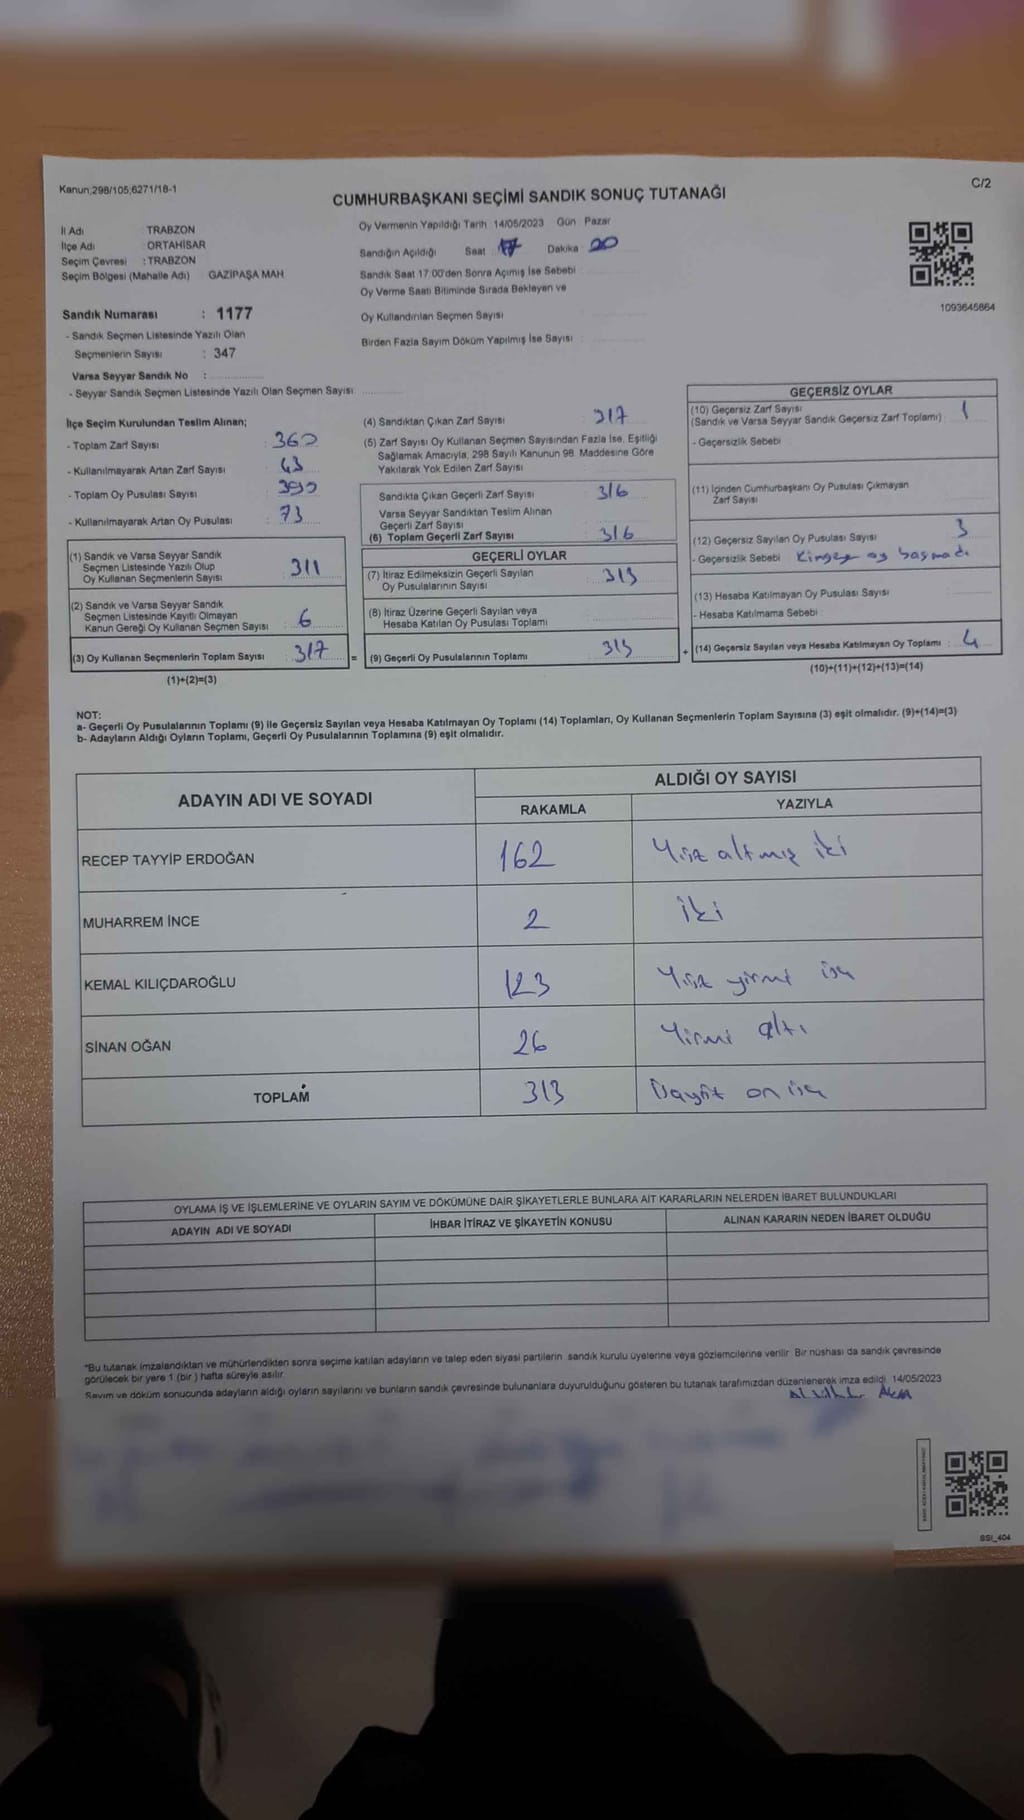 Kanun;298/105,6271/18-1
C/2
CUMHURBAŞKANI SEÇİMİ SANDIK SONUÇ TUTANAĞI
İl Adı : TRABZON
İlçe Adı : ORTAHİSAR
Seçim Çevresi : TRABZON
Seçim Bölgesi (Mahalle Adı) : GAZİPAŞA MAH
Oy Vermenin Yapıldığı Tarih 14/05/2023 Gün : Pazar
Sandığın Açıldığı Saat 17 Dakika 20
Sandık Saat 17:00'den Sonra Açımış İse Sebebi
Oy Verme Saati Bitiminde Sırada Bekleyen ve
Oy Kullandırılan Seçmen Sayısı
Birden Fazla Sayım Döküm Yapılmış İse Sayısı :
1093645864
Sandık Numarası : 1177
- Sandık Seçmen Listesinde Yazılı Olan
Seçmenlerin Sayısı : 347
Varsa Seyyar Sandık No :
- Seyyar Sandık Seçmen Listesinde Yazılı Olan Seçmen Sayısı:
İlçe Seçim Kurulundan Teslim Alınan;
- Toplam Zarf Sayısı : 360
- Kullanılmayarak Artan Zarf Sayısı : 43
- Toplam Oy Pusulası Sayısı : 390
- Kullanılmayarak Artan Oy Pusulası : 73
(1) Sandık ve Varsa Seyyar Sandık
Seçmen Listesinde Yazılı Olup
Oy Kullanan Seçmenlerin Sayısı : 311
(2) Sandık ve Varsa Seyyar Sandık
Seçmen Listesinde Kayıtlı Olmayan
Kanun Gereği Oy Kullanan Seçmen Sayısı : 6
(3) Oy Kullanan Seçmenlerin Toplam Sayısı : 317 =
(1)+(2)=(3)
(4) Sandıktan Çıkan Zarf Sayısı : 317
(5) Zarf Sayısı Oy Kullanan Seçmen Sayısından Fazla İse, Eşitliği
Sağlamak Amacıyla, 298 Sayılı Kanunun 98. Maddesine Göre
Yakılarak Yok Edilen Zarf Sayısı
Sandıkta Çıkan Geçerli Zarf Sayısı : 316
Varsa Seyyar Sandıktan Teslim Alınan
Geçerli Zarf Sayısı
(6) Toplam Geçerli Zarf Sayısı : 316
GEÇERLİ OYLAR
(7) İtiraz Edilmeksizin Geçerli Sayılan
Oy Pusulalarının Sayısı : 313
(8) İtiraz Üzerine Geçerli Sayılan veya
Hesaba Katılan Oy Pusulası Toplamı :
(9) Geçerli Oy Pusulalarının Toplamı : 313 +
GEÇERSİZ OYLAR
(10) Geçersiz Zarf Sayısı
(Sandık ve Varsa Seyyar Sandık Geçersiz Zarf Toplamı) : 1
- Geçersizlik Sebebi
(11) İçinden Cumhurbaşkanı Oy Pusulası Çıkmayan
Zarf Sayısı
(12) Geçersiz Sayılan Oy Pusulası Sayısı : 3
- Geçersizlik Sebebi Kimseye oy basmadı
(13) Hesaba Katılmayan Oy Pusulası Sayısı
- Hesaba Katılmama Sebebi :
(14) Geçersiz Sayılan veya Hesaba Katılmayan Oy Toplamı : 4
(10)+(11)+(12)+(13)=(14)
NOT:
a- Geçerli Oy Pusulalarının Toplamı (9) ile Geçersiz Sayılan veya Hesaba Katılmayan Oy Toplamı (14) Toplamları, Oy Kullanan Seçmenlerin Toplam Sayısına (3) eşit olmalıdır. (9)+(14)=(3)
b- Adayların Aldığı Oyların Toplamı, Geçerli Oy Pusulalarının Toplamına (9) eşit olmalıdır.
ADAYIN ADI VE SOYADI
ALDIĞI OY SAYISI
RAKAMLA YAZIYLA
RECEP TAYYİP ERDOĞAN 162 Yüz altmış iki
MUHARREM İNCE 2 iki
KEMAL KILIÇDAROĞLU 123 Yüz yirmi üç
SİNAN OĞAN 26 Yirmi altı
TOPLAM 313 Üçyüz on üç
OYLAMA İŞ VE İŞLEMLERİNE VE OYLARIN SAYIM VE DÖKÜMÜNE DAİR ŞİKAYETLERLE BUNLARA AİT KARARLARIN NELERDEN İBARET BULUNDUKLARI
ADAYIN ADI VE SOYADI İHBAR İTİRAZ VE ŞİKAYETİN KONUSU ALINAN KARARIN NEDEN İBARET OLDUĞU
*Bu tutanak imzalandıktan ve mühürlendikten sonra seçime katılan adayların ve talep eden siyasi partilerin sandık kurulu üyelerine veya gözlemcilerine verilir. Bir nüshası da sandık çevresinde
görülecek bir yere 1 (bir ) hafta süreyle asılır.
Sayım ve döküm sonucunda adayların aldığı oyların sayılarını ve bunların sandık çevresinde bulunanlara duyurulduğunu gösteren bu tutanak tarafımızdan düzenlenerek imza edildi. 14/05/2023
BSI_404